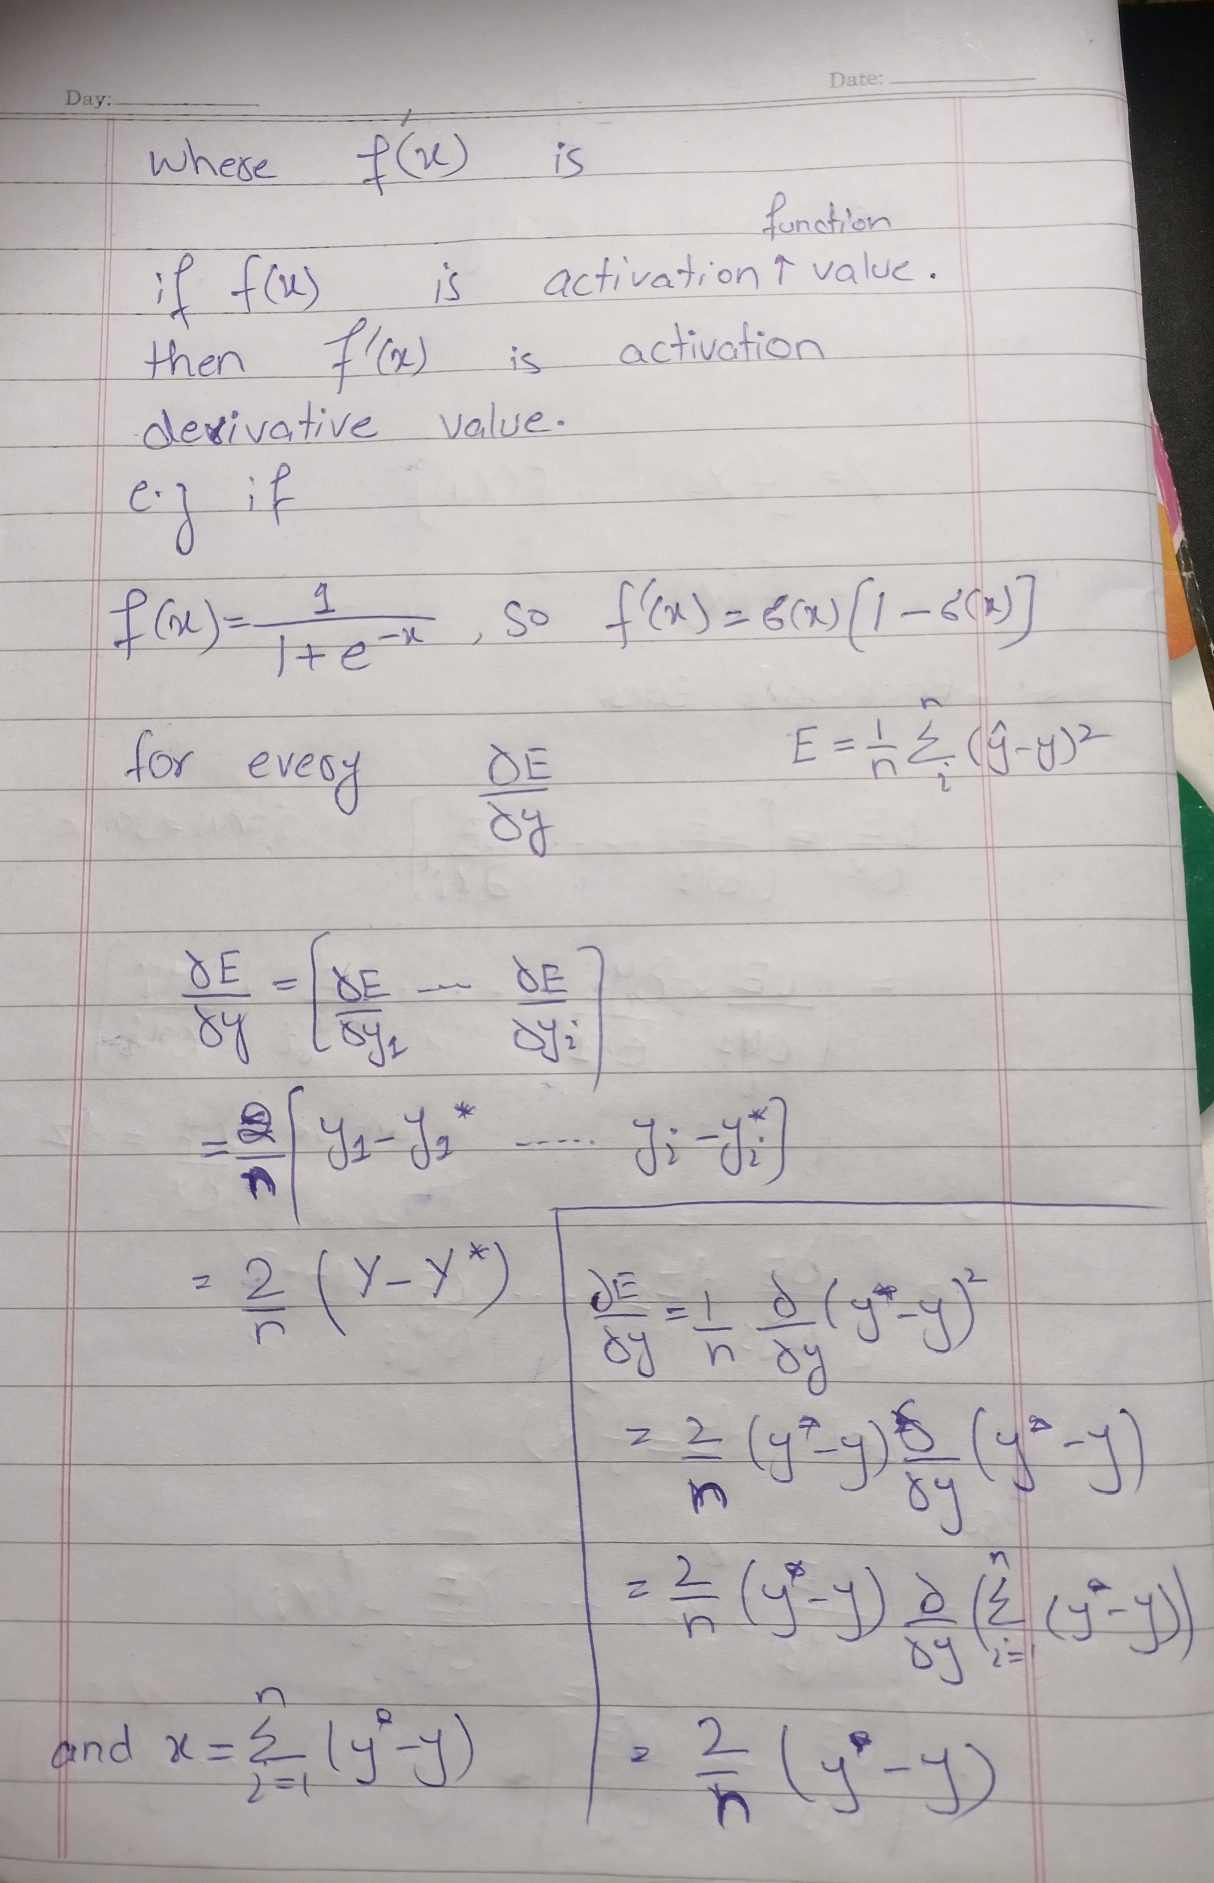 Day:
Date:
where f'(x) is
function
if f(x) is activation ↑ value.
then f'(x) is activation
derivative value.
e.g if
f(x) = 1/(1+e^-x), so f'(x) = σ(x)[1-σ(x)]
for every ∂E/∂y E = 1/n Σ_i^n (ŷ-y)²
∂E/∂y = [∂E/∂y₁ ---- ∂E/∂yᵢ]
= 2/n [y₁-y₁* ...... yᵢ-yᵢ*]
= 2/n (Y-Y*)
∂E/∂y = 1/n ∂/∂y (y*-y)²
= 2/n (y*-y) ∂/∂y (y*-y)
= 2/n (y*-y) ∂/∂y (Σ_{i=1}^n (y*-y))
= 2/n (y*-y)
and x = Σ_{i=1}^n (y*-y)